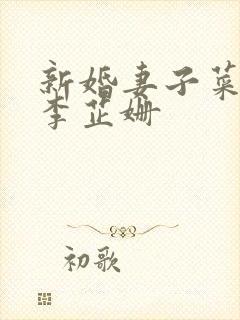 新婚妻子菜
李芷姗
初歌